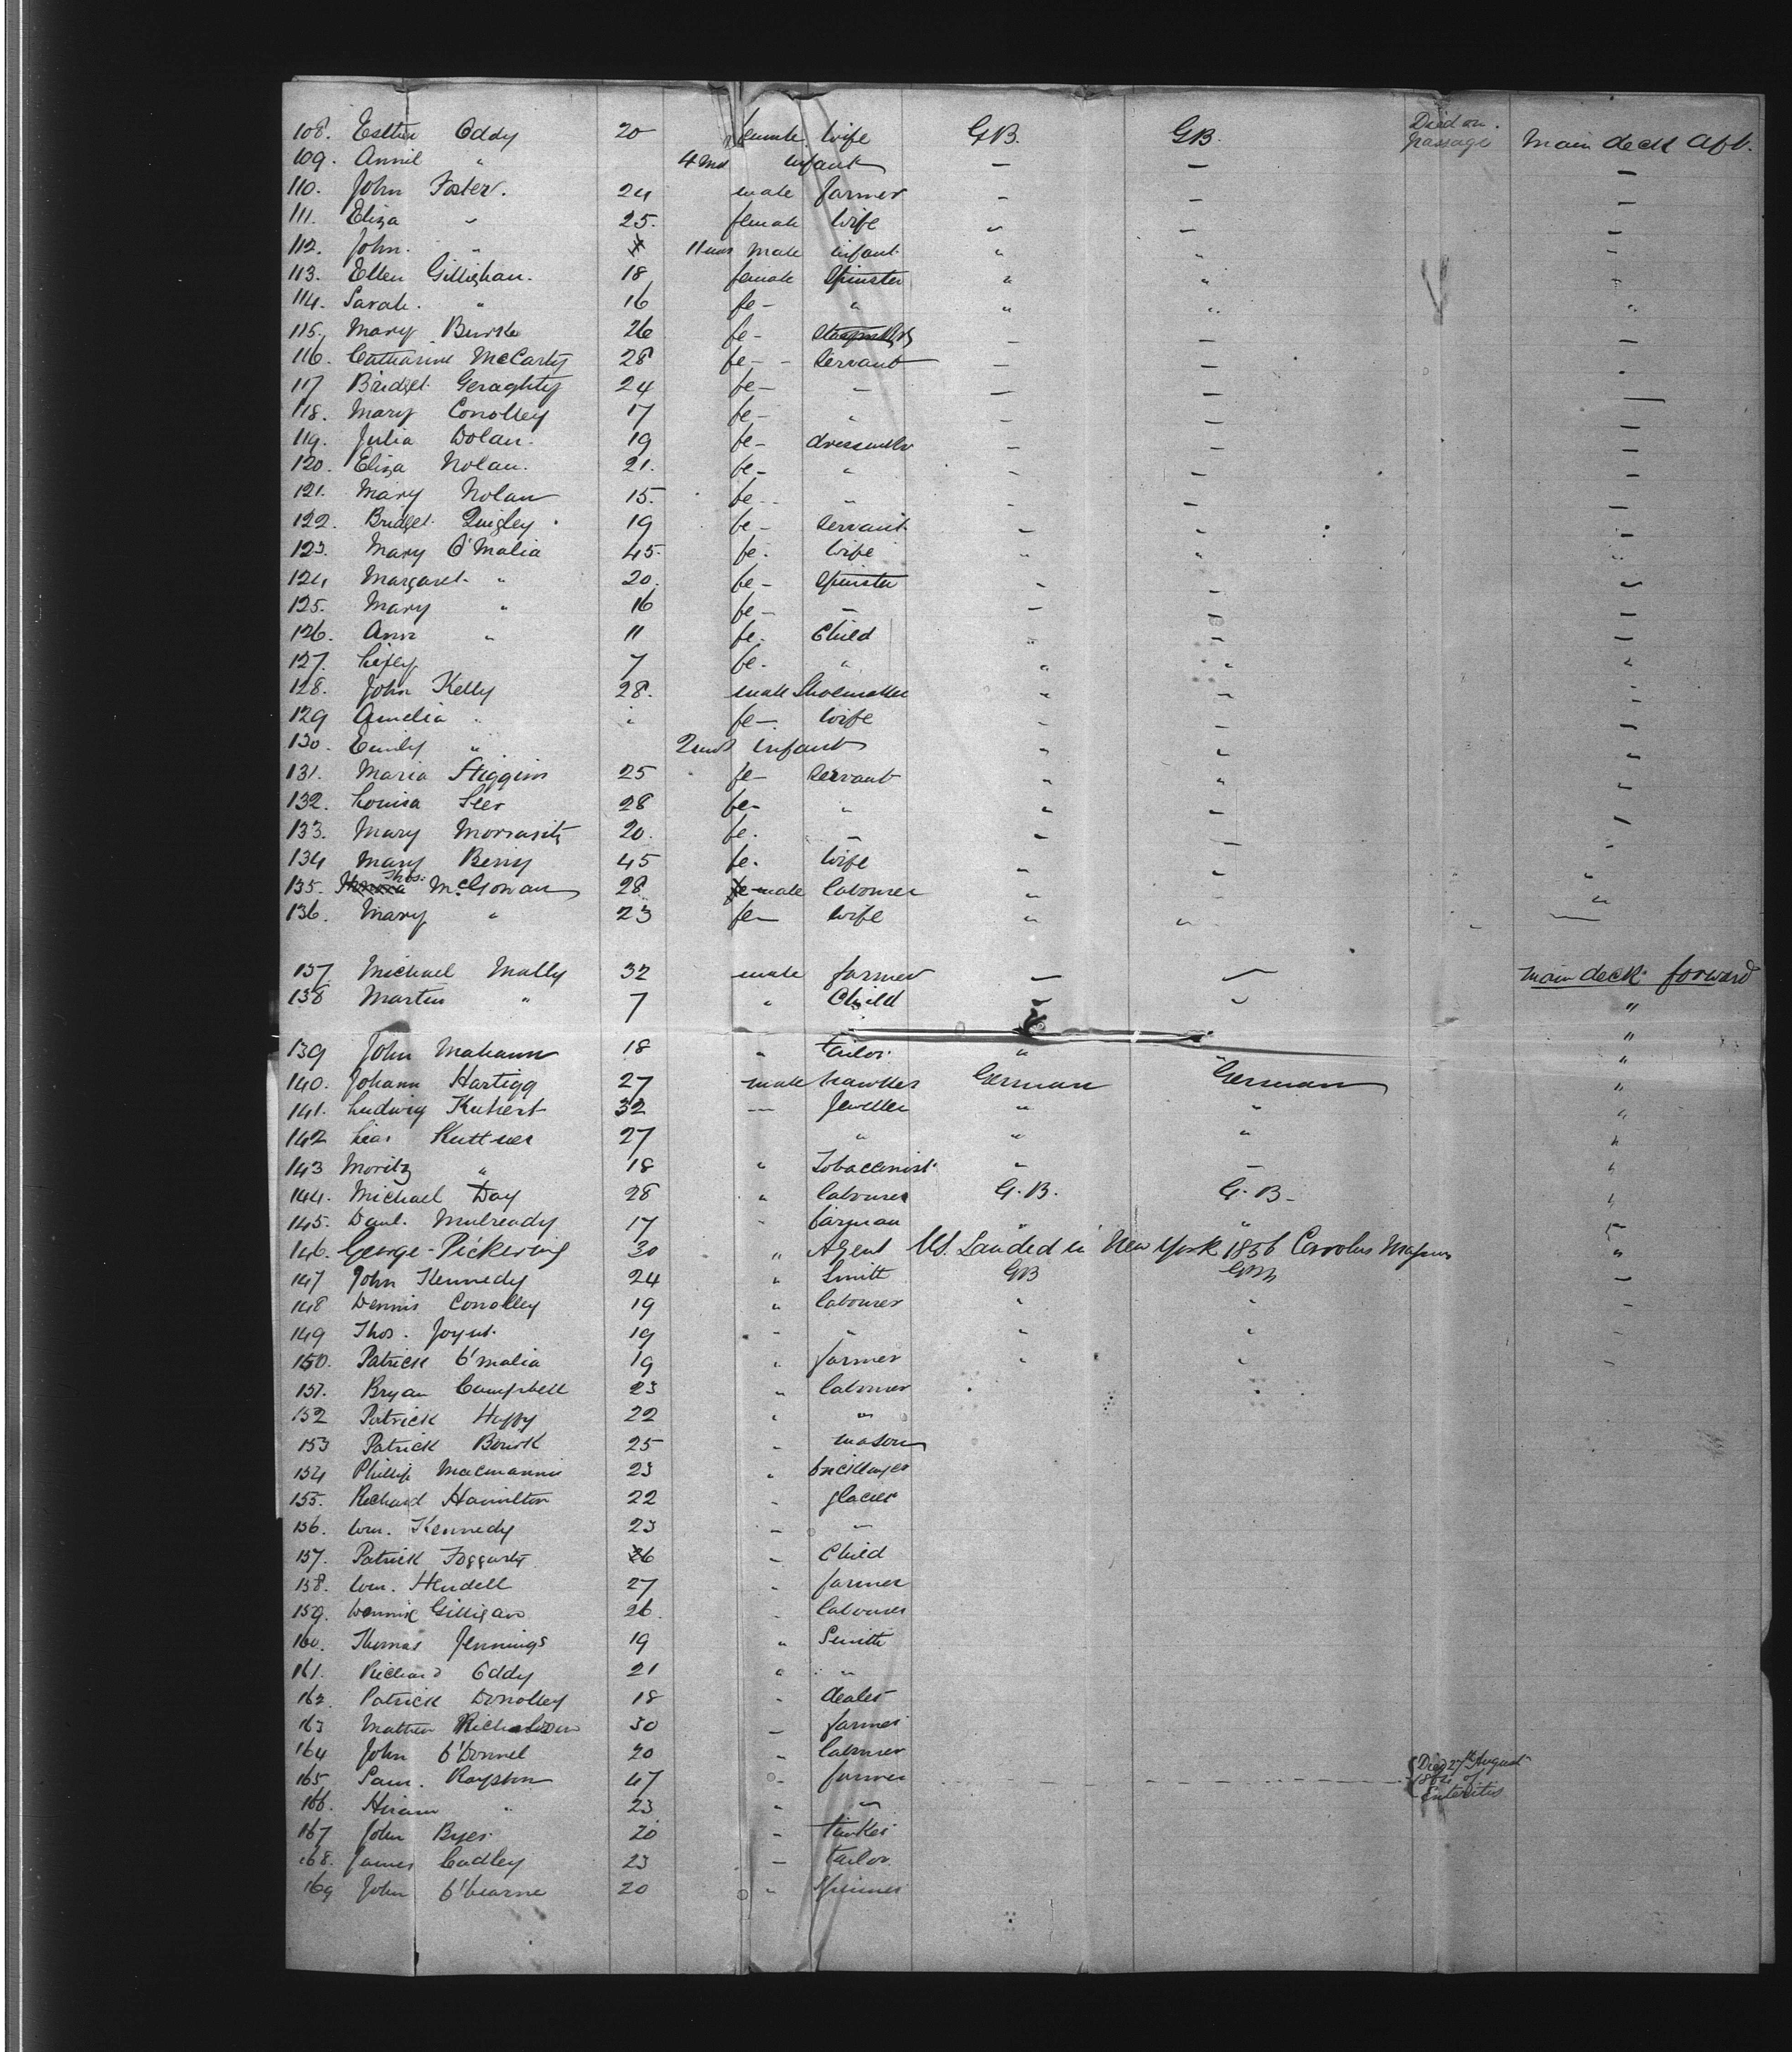 108. Esther Oddy 20 female wife GB. GB. Died on passage main deck Aft.
109. Annie " 4 mos infant — — —
110. John Foster. 24 male farmer — — —
111. Eliza " 25. female wife " — —
112. John. " 11 mos male infant " " "
113. Ellen Gillighan. 18 female Spinster " " "
114. Sarah. " 16 fe - " " " "
115. Mary Burke 26 fe - — — —
116. Catharine McCarty 28 fe - - Servant — — "
117 Bridget Geraghty 24 fe - — — — —
118. Mary Conolley 17 fe - " — — —
119. Julia Dolan. 19 fe - dressmkr — — —
120. Eliza Nolan. 21. fe - " — — —
121. Mary Nolan 15. fe - " — — —
122. Bridget Quigley. 19 fe - Servant. — — —
123. Mary O'Malia 45. fe. wife " " "
124 Margaret " 20. fe - Spinster — — —
125. Mary " 16 fe - — — — —
126. Ann " 11 fe. Child " — —
127. 7 fe. " " " "
128. John Kelly 28. male Shoemaker " — —
129 Amelia " " fe - wife — — —
130. Emily " 2 mos infant " " "
131. Maria Higgins 25 fe - Servant " " "
132. Louisa 28 fe - " " — —
133. Mary 20. fe. — — — "
134 Mary Berry 45 fe. wife — " "
135. Thos. McGowan 28 male labourer " — "
136. Mary " 23 fe - wife " " " —
137 Michael Mally 32 male farmer — — main deck forward
138 Martin " 7 " Child " " "
139 John Mahann 18 " tailor " " "
140. Johann Hartigg 27 male hawker German German "
141. Ludwig Kuhert 32 — Jeweller " " "
142 Kuttner 27 " " " "
143 Moritz " 18 " Tobacconist " — "
144. Michael Day 28 " labourer G. B. G. B - "
145. Danl. Mulready 17 " carman " " "
146. George Pickering 30 " Agent US. Landed in New York 1856 Carolus Magnus "
147 John Kennedy 24 " Smith GB —
148 Dennis Conolley 19 " labourer " " —
149 Thos. Joynt. 19 - " " " —
150. Patrick O'malia 19 " farmer " " —
151. Bryan Campbell 23 " labourer
152 Patrick Happy 22 " "
153 Patrick Bourk 25 - mason
154 Phillip Macmannis 23 " bricklayer
155. Richard Hamilton 22 - glacier
156. Wm. Kennedy 23 — —
157. Patrick Foggarty 6 - Child
158. Wm. Hendell 27 - farmer
159. Dennis Gilligan 26. - labourer
160. Thomas Jennings 19 " Smith
161. Richard Oddy 21 " "
162. Patrick Donolley 18 - dealer
163 Mathew Richardson 30 - farmer
164 John O'Donnel 20 " labourer
165 Sam. Royston 47 - farmer Died 27th August 1862 of Enteritis
166. Hiram " 23 - "
167 John Byer 20 - tinker
168. James Cadley 23 — tailor
169 John O'hearne 20 " Spinner